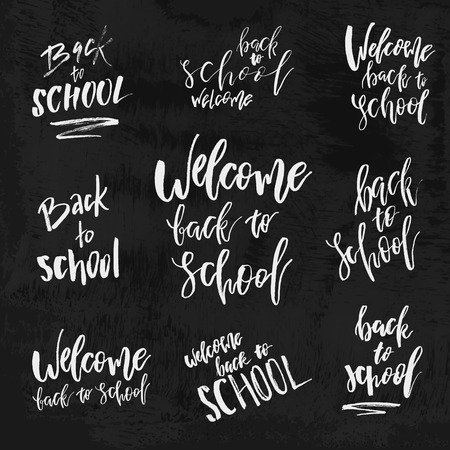 Back
to
SCHOOL
back
to
School
welcome
Welcome
back to
School
Back
to
school
Welcome
back to
School
back
to
School
Welcome
back to school
welcome
back to
SCHOOL
back
to
school